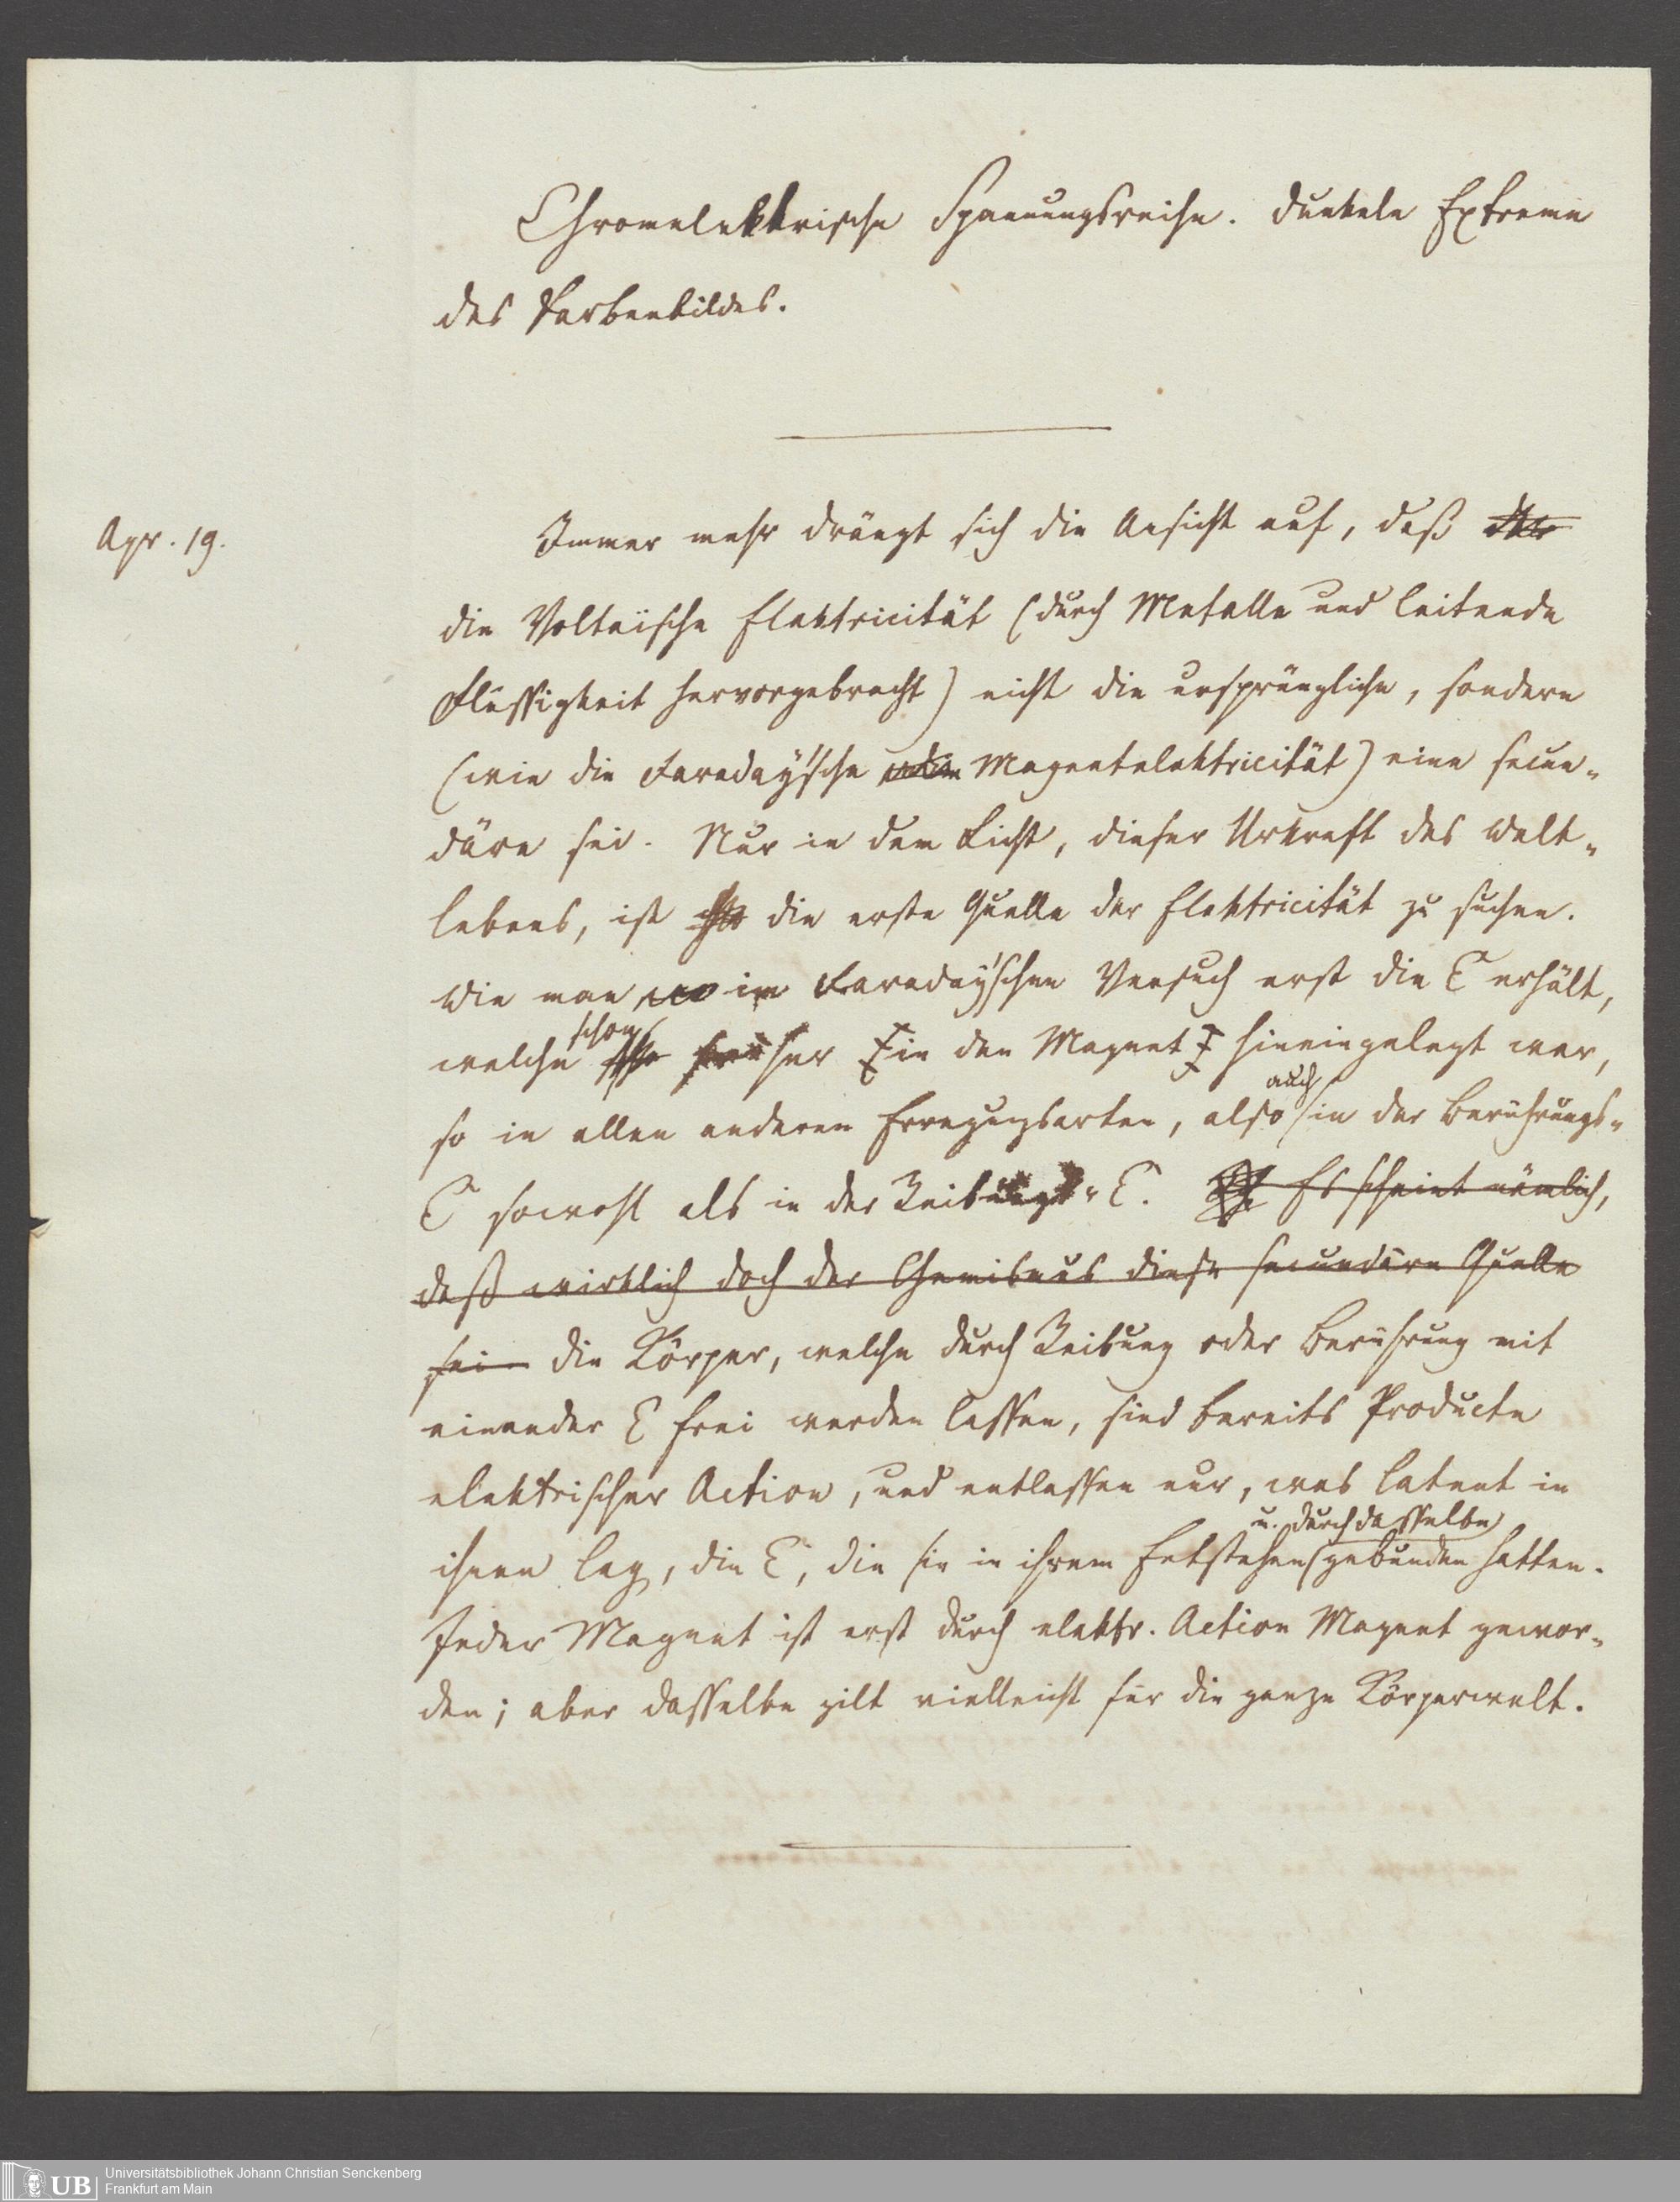 Chromelektrische Spannungsreihe. Dunkele Extreme
des Farbenbildes.
Apr. 19.
Immer mehr drängt sich die Ansicht auf, daß
die Voltaische Elektricität (durch Metalle und leitende
Flüssigkeit hervorgebracht) nicht die ursprüngliche, sondern
(wie die Faraday'sche Magnetelektricität) eine secun-
däre sei. Nur in dem Licht, dieser Urkraft des Welt-
lebens, ist die erste Quelle der Elektricität zu suchen.
Wie man im Faraday'schen Versuch erst die E erhält,
schon
welche früher in den Magnet hineingelegt war,
auch
so in allen anderen Erregungsarten, also in der Berührungs-
E sowohl als in der Reibungs-E. Es scheint nämlich,
daß wirklich doch der Chemismus diese secundäre Quelle
sei Die Körper, welche durch Reibung oder Berührung mit
einander E frei werden lassen, sind bereits Producte
elektrischer Action, und entlassen nur, was latent in
u. durch dasselbe
ihnen lag, die E, die sie in ihrem Entstehen gebunden hatten.
Jeder Magnet ist erst durch elektr. Action Magnet gewor-
den; aber dasselbe gilt vielleicht für die ganze Körperwelt.
UB Universitätsbibliothek Johann Christian Senckenberg
Frankfurt am Main